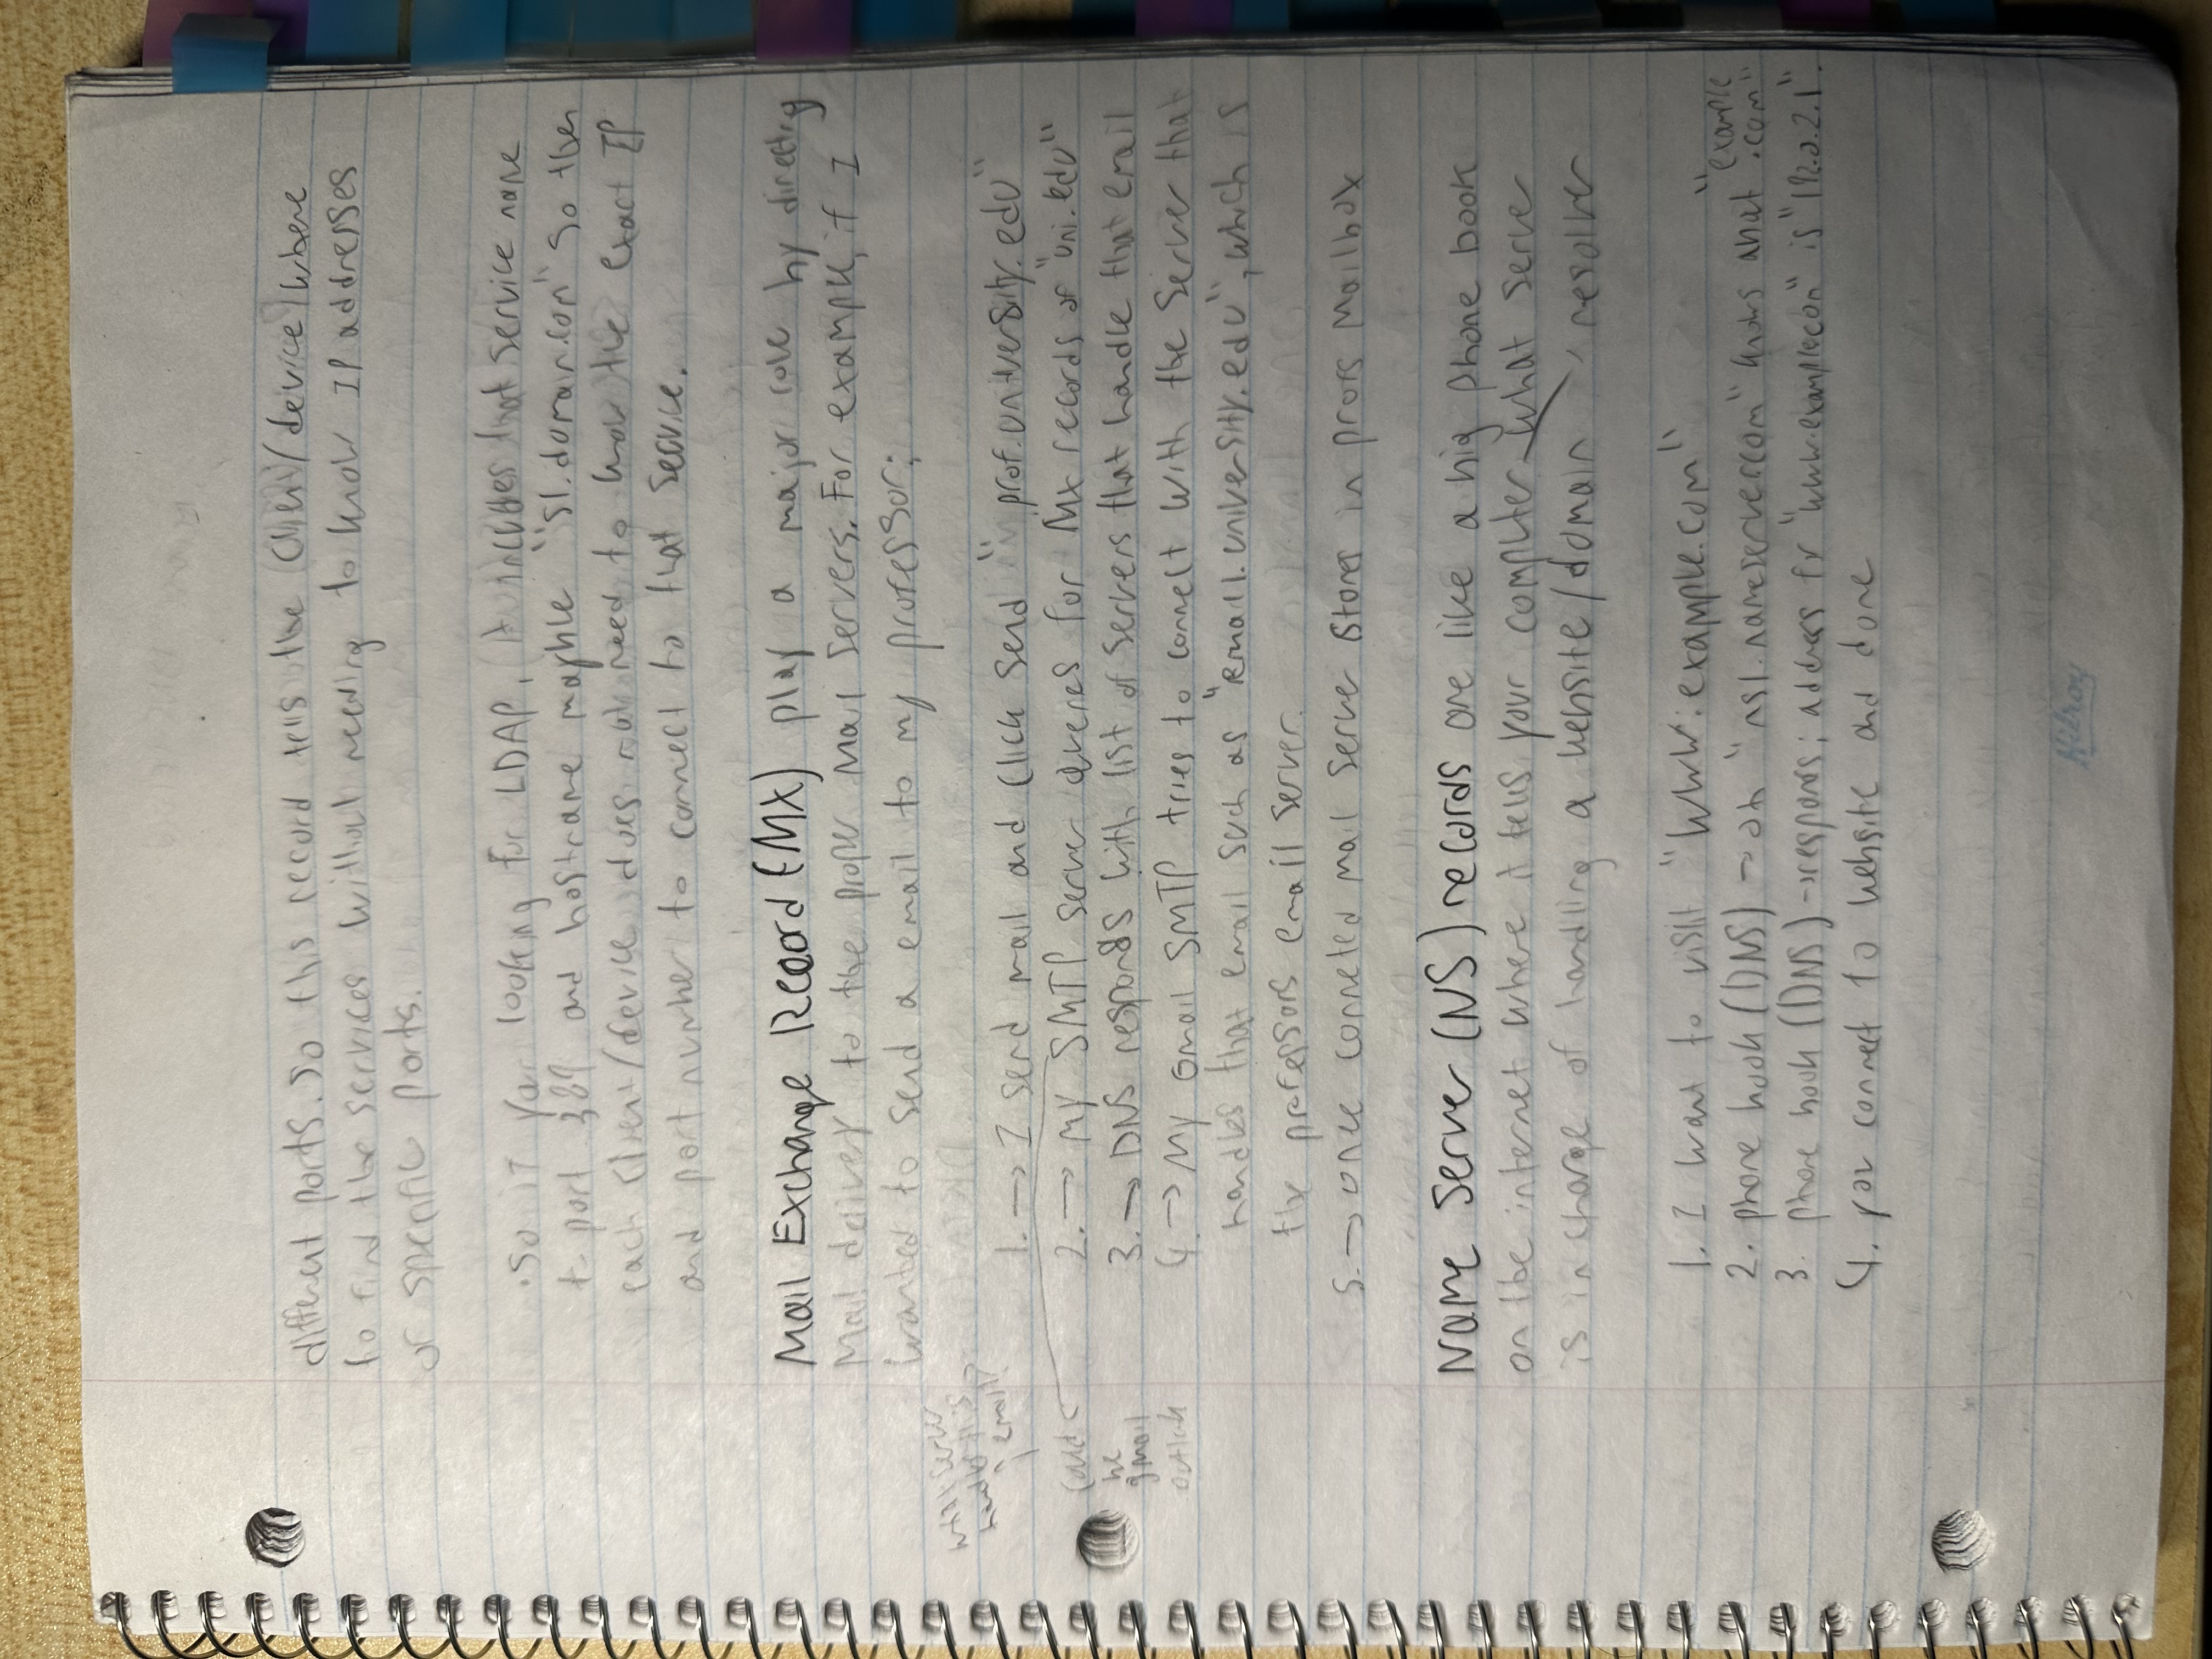 different ports. So this record tells the client/device where
to find the services without needing to know IP addresses
or specific ports.
·So if your looking for LDAP, it includes that service name
+ port 389 and hostname mayble "s1.domain.com" so then
each client/device does not need to know the exact IP
and port number to connect to that service.
Mail Exchange Record (MX) play a major role by directing
Mail delivery to the proper Mail servers. For example, if I
wanted to send a email to my professor;
what server
handles this
email?
1. → I send mail and click send "prof.university.edu"
2. → My SMTP server queries for Mx records of "uni.edu"
could
be
gmail
outlook
3. → DNS responds with list of servers that handle that email
4. → My Gmail SMTP tries to connect with the server that
handles that email such as "email1.university.edu", which is
the professors email server.
5. → once conneted mail server stores in profs Mailbox
Name Server (NS) records are like a big phone book
on the internet where it tells your computer what server
is in charge of handling a website/domain resolver
1. I want to visit "www.example.com"
2. phone book (DNS) → oh "ns1.nameserver.com" knows about "example
.com"
3. phone book (DNS) → responds; address for "www.example.com" is "192.0.2.1".
4. you connect to website and done
Hilroy